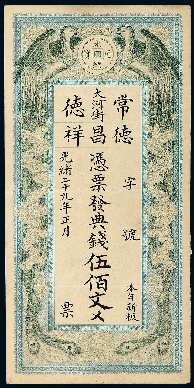 常德
大河街
昌
德祥
字號
憑票發典錢伍佰文
光緒二十九年正月
票